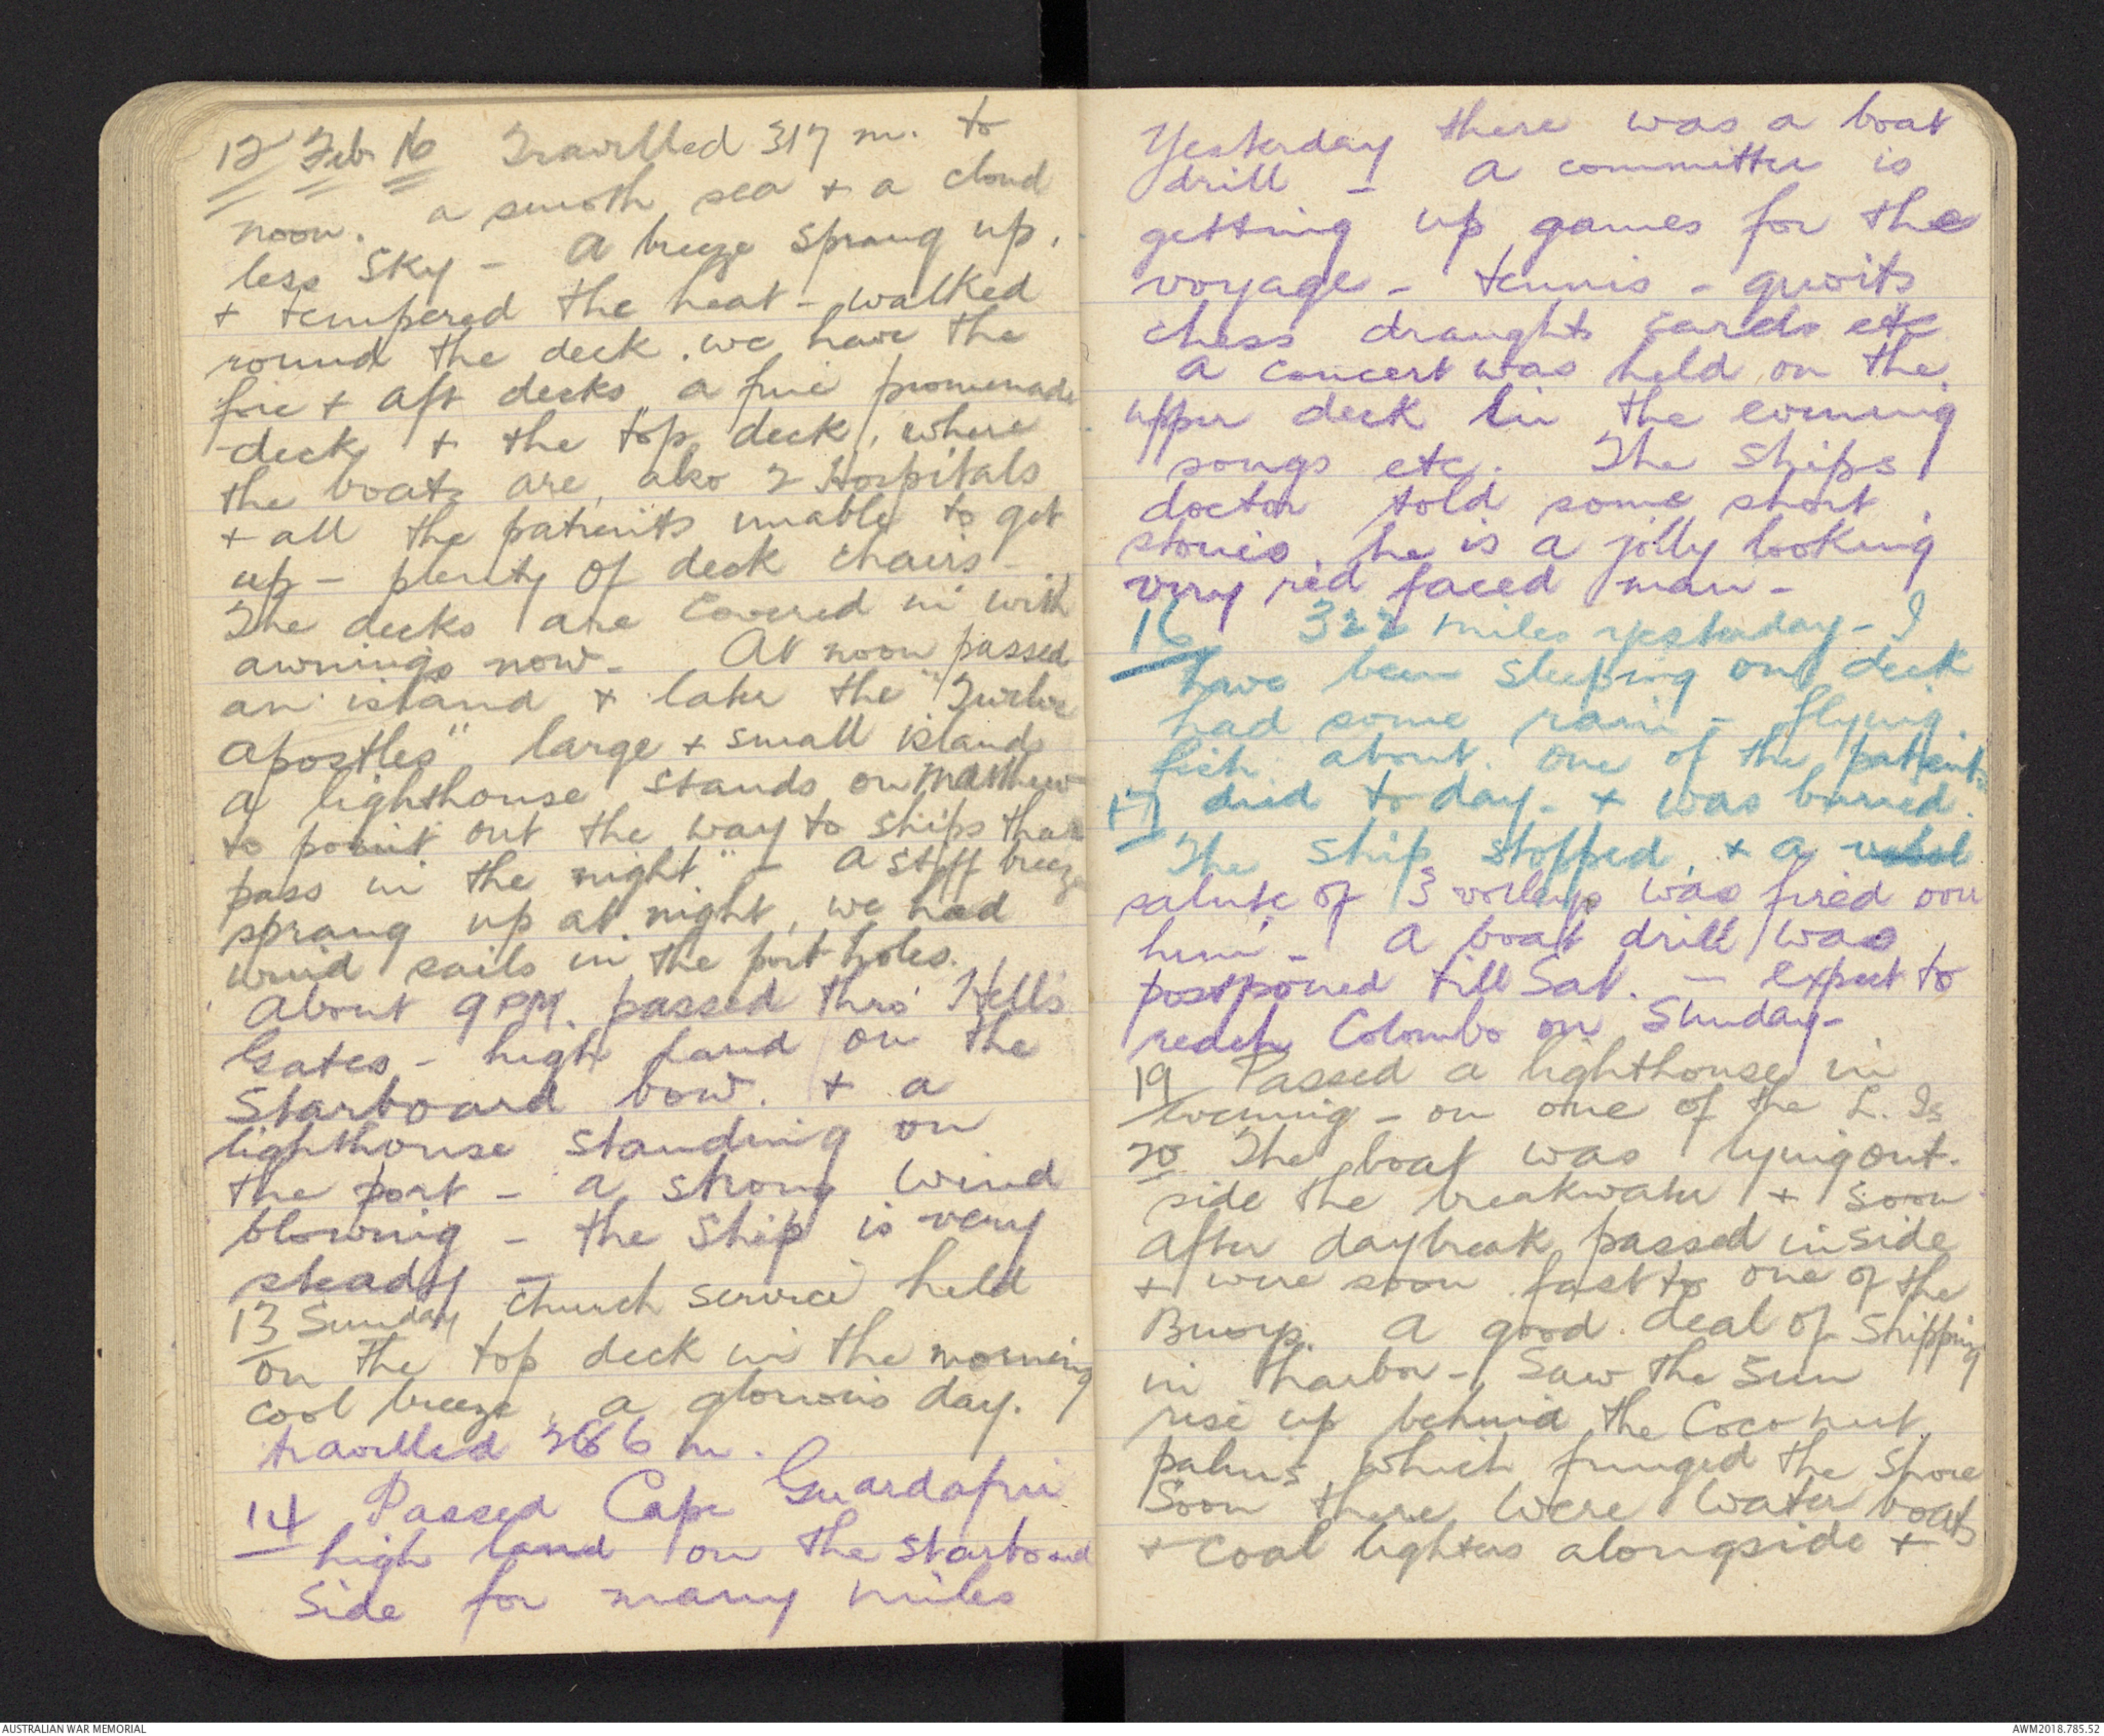 12 Feb 16 Travelled 317 m. to
noon. a smooth sea + a cloud
less sky - A breeze sprang up,
+ tempered the heat - walked
round the deck. we have the
fore + aft decks a fine promenade
deck + the top deck, where
the boats are, also 2 Hospitals
+ all the patients unable to get
up - plenty of deck chairs -
The decks are covered in with
awnings now - At noon passed
an island + later the "Twelve
Apostles" large + small islands
a lighthouse stands on Matthew
to point out the way to ships that
pass in the night" - A stiff breeze
sprang up at night, we had
wind sails in the port holes.
About 9 PM. passed thro' Hells
Gates - high land on the
Starboard bow. + a
lighthouse standing on
the port - a strong wind
blowing - the ship is very
steady -
13 Sunday Church service held
on the top deck in the morning
cool breeze, a glorious day.
travelled 286 m.
14 Passed Cape Guardafui
high land on the starboard
side for many miles
Yesterday there was a boat
drill - A committee is
getting up games for the
voyage - tennis - quoits
chess draughts cards etc
A concert was held on the
upper deck in the evening
songs etc. The ships
doctor told some short
stories, he is a jolly looking
very red faced man -
16 322 miles yesterday - I
have been sleeping on deck
had some rain - flying
fish about. One of the patients
17 died to day - + was buried.
The ship stopped, + a
salute of 3 volleys was fired over
him - A boat drill was
postponed till Sat. - expect to
reach Colombo on Sunday -
19 Passed a lighthouse in
evening - on one of the L. Is
20 The boat was lying out-
side the breakwater + soon
after daybreak passed inside
+ were soon fast to one of the
Buoys. A good deal of shipping
in harbor - Saw the sun
rise up behind the Coco nut
palms which fringed the shore
Soon there were water boats
+ coal lighters alongside +
AUSTRALIAN WAR MEMORIAL
AWM2018.785.52